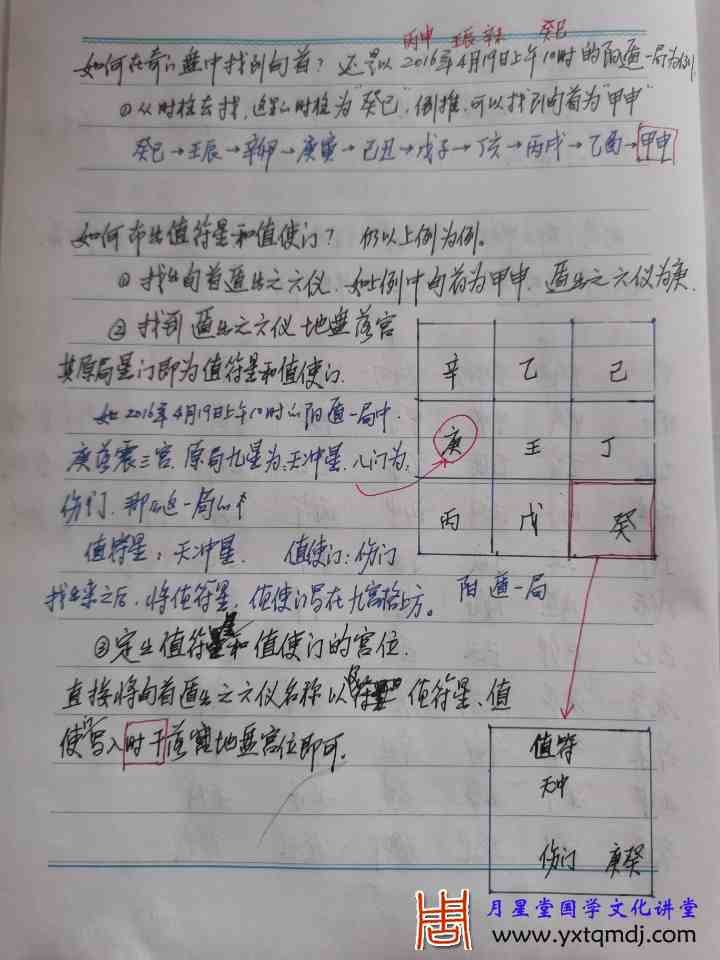 丙申 壬辰 辛未 癸巳
如何在奇门盘中找到旬首？还是以2016年4月19日上午10时的阳遁一局为例
①从时柱去找，这里时柱为"癸巳"，倒推，可以找到旬首为"甲申"
癸巳→壬辰→辛卯→庚寅→己丑→戊子→丁亥→丙戌→乙酉→甲申
如何布出值符星和值使门？仍以上例为例。
①找出旬首遁出之六仪，如上例中旬首为甲申，遁出之六仪为庚.
②找到遁出之六仪地盘落宫
其原局星门即为值符星和值使门.
如2016年4月19日上午10时的阳遁一局中.
庚落震三宫，原局九星为：天冲星，八门为：
伤门，那么这一局的
值符星：天冲星. 值使门：伤门
找出来之后，将值符星，值使门写在九宫格上方。
辛 乙 己
庚 壬 丁
丙 戊 癸
阳遁一局
③定出值符和值使门的宫位.
直接将旬首遁出之六仪名称以 值符星、值
使门写入时干落宫地盘宫位即可.
值符
天冲
伤门 庚癸
月星堂国学文化讲堂
www.yxtqmdj.com